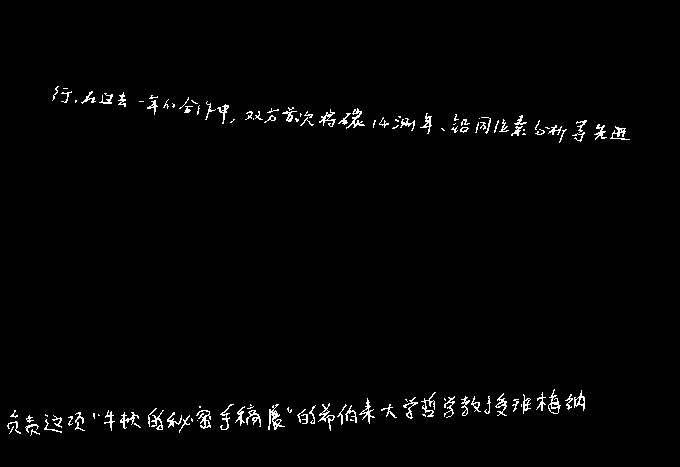 行.在过去一年的合作中,双方首次将碳14测年、铅同位素分析等先进
负责这项“牛顿的秘密手稿展”的希伯来大学哲学教授班梅纳